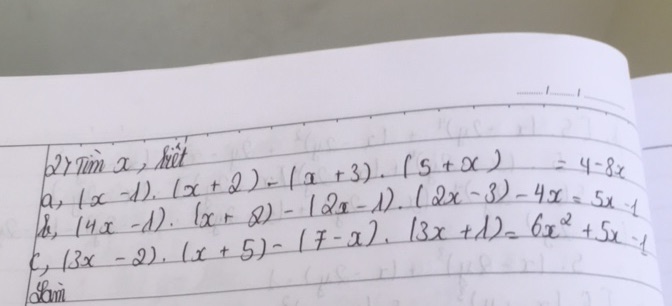 2) Tìm x, biết
a, (x - 1). (x + 2) - (x + 3). (5 + x) = 4 - 8x
b, (4x - 1). (x + 2) - (2x - 1). (2x - 3) - 4x = 5x - 1
c, (3x - 2). (x + 5) - (7 - x). (3x + 1) = 6x² + 5x - 1
Làm